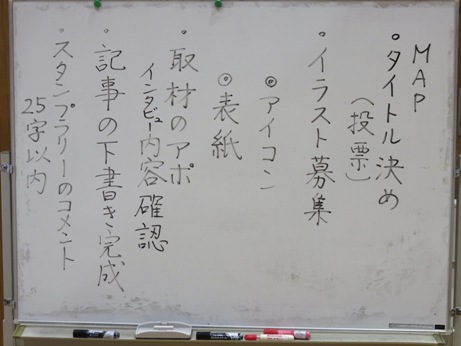 MAP
・タイトル決め
（投票）
・イラスト募集
◎アイコン
◎表紙
・取材のアポ
インタビュー内容確認
・記事の下書き完成
・スタンプラリーのコメント
25字以内